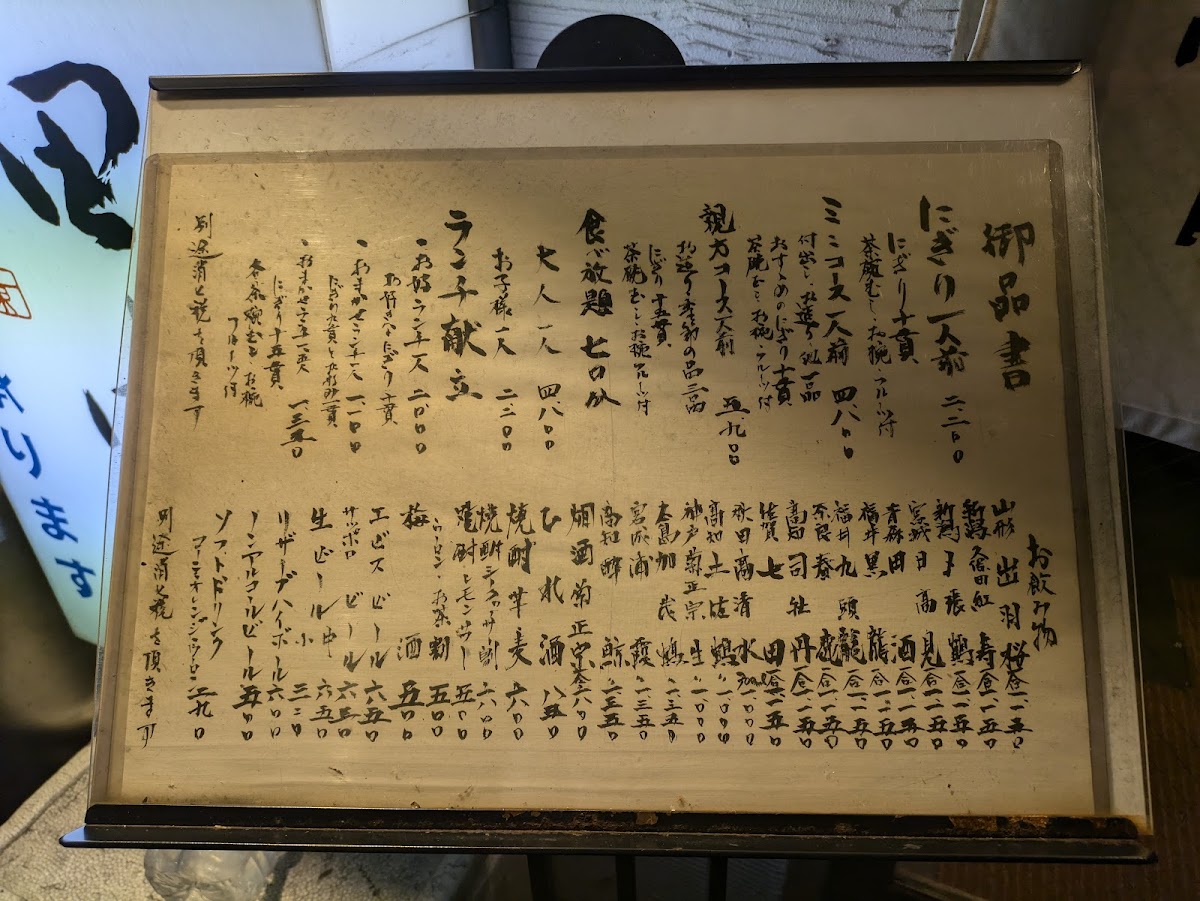 御品書
にぎり一人前 二、二〇〇
にぎり十貫
茶碗むし・お椀・フルーツ付
ミニコース一人前 四、八〇〇
付出し・お造り 一品
おすすめのにぎり十貫
茶碗むし・お椀・フルーツ付
親方コース一人前 五、九〇〇
お造り・季節の品三品
にぎり十五貫
茶碗むし・お椀・フルーツ付
食べ放題 七〇分
大人一人 四、八〇〇
お子様一人 二、二〇〇
ランチ献立
・お好ランチ一人 二、〇〇〇
お好きなにぎり十貫
・おまかせランチ一人 一、一〇〇
・おまかせランチ十五一人 一、三五〇
にぎり十五貫
各茶碗むし お椀
フルーツ付
別途消費税を頂きます
お飲み物
山形 出羽桜 一合 一、一五〇
新潟 久保田 紅寿 一合 一、一五〇
新潟 〆張鶴 一合 一、一五〇
宮城 日高見 一合 一、一五〇
青森 田酒 一合 一、一五〇
福井 黒龍 一合 一、一五〇
福井 九頭龍 一合 一、一五〇
奈良 春鹿 一合 一、一五〇
高知 司牡丹 一合 一、一五〇
佐賀 七田 一合 一、一五〇
秋田 高清水 300ml 一、〇〇〇
高知 土佐鶴 一、〇〇〇
神戸 菊正宗 生 一、〇〇〇
広島 加茂鶴 一、三五〇
宮城 浦霞 一、三五〇
高知 酔鯨 一、三五〇
燗酒 菊正宗 一合 六八〇
ひれ酒 八五〇
焼酎 芋・麦 六〇〇
焼酎シークヮサー割 六〇〇
焼酎レモンサワー 五五〇
ウーロン・お茶割 五五〇
梅酒 五五〇
エビスビール 六五〇
サッポロビール 六五〇
生ビール 中 六五〇
小 三二〇
リーザーブハイボール 六〇〇
ノンアルコールビール 五五〇
ソフトドリンク
コーラ・オレンジ・ウーロン 三九〇
別途消費税を頂きます
ります